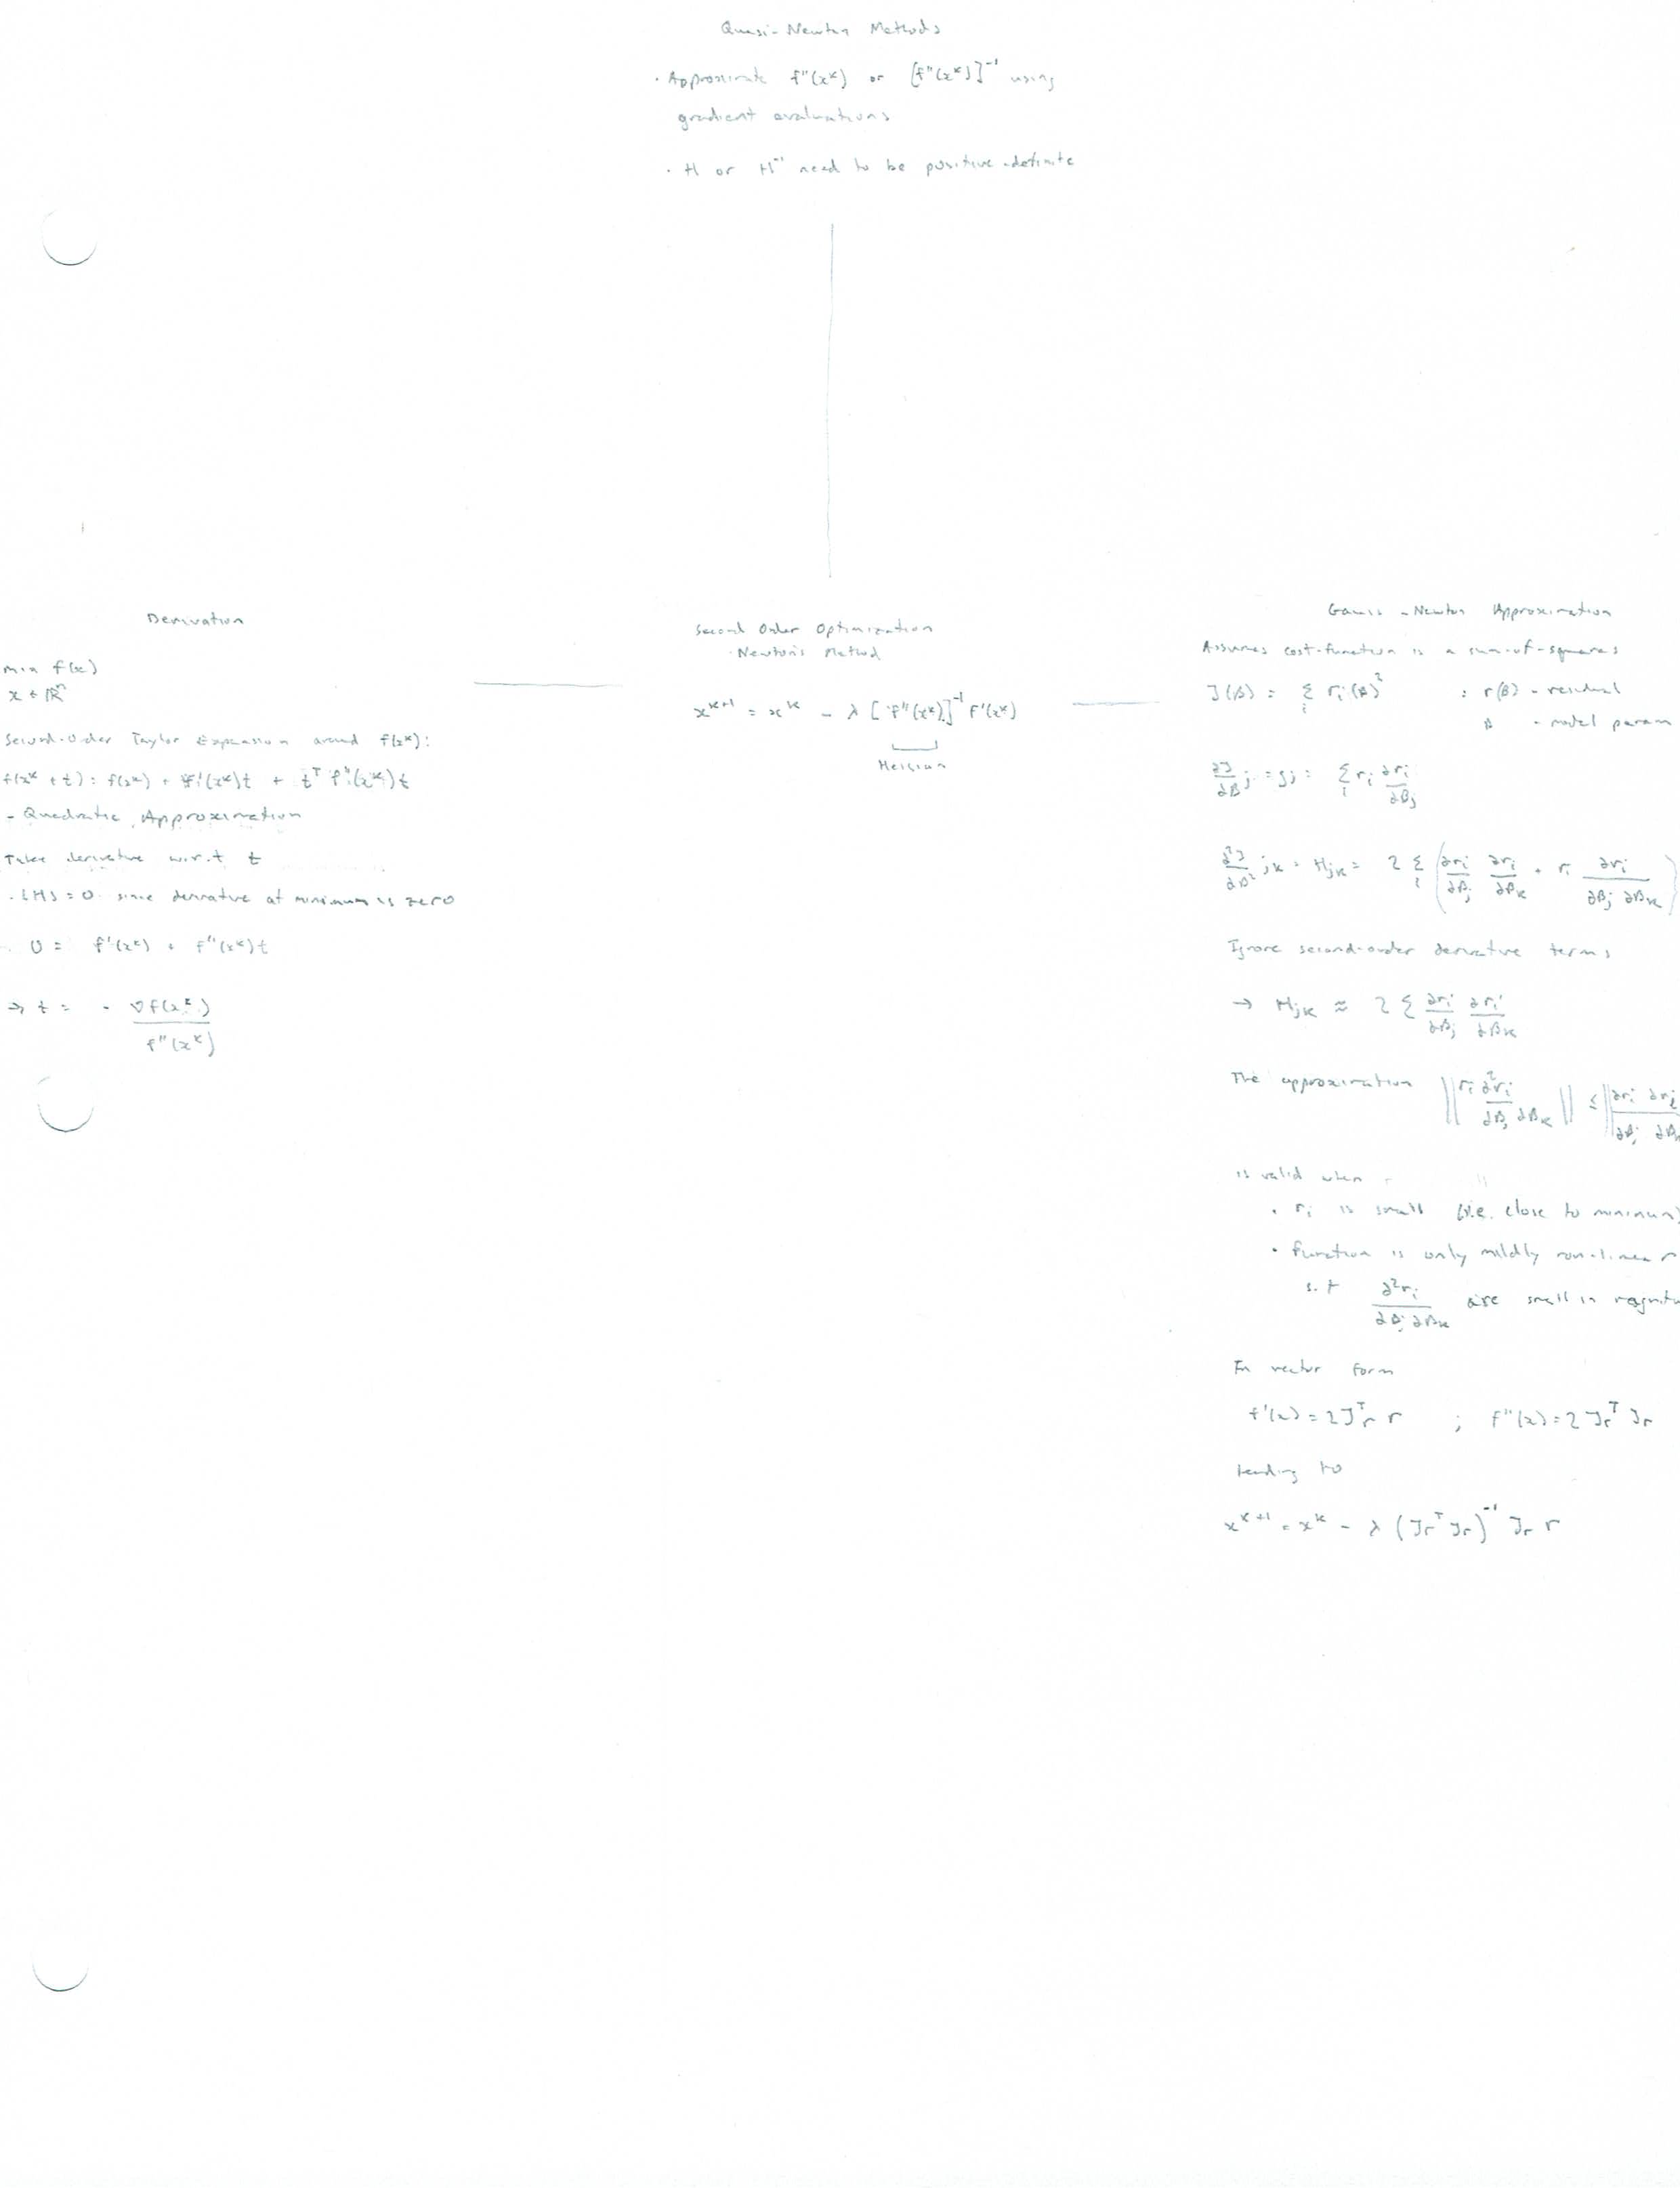 Quasi-Newton Methods
· Approximate f''(x^k) or [f''(x^k)]^-1 using
gradient evaluations
· H or H^-1 need to be positive-definite
Derivation
min f(x)
x ∈ ℝ^n
Second-Order Taylor Expansion around f(x^k):
f(x^k + t) = f(x^k) + f'(x^k)t + t^T f''(x^k)t
- Quadratic Approximation
Take derivative w.r.t t
· LHS = 0 since derivative at minimum is zero
0 = f'(x^k) + f''(x^k)t
⇒ t = - ∇f(x^k) / f''(x^k)
Second Order Optimization
Newton's Method
x^k+1 = x^k - λ [f''(x^k)]^-1 f'(x^k)
Hessian
Gauss-Newton Approximation
Assumes cost-function is a sum-of-squares
J(β) = Σ_i r_i(β)^2 : r(β) - residual
β - model param
∂J/∂β j = g_j = Σ_i r_i ∂r_i/∂β_j
∂^2J/∂β^2 jk = H_jk = 2 Σ_i (∂r_i/∂β_j ∂r_i/∂β_k + r_i ∂r_i/∂β_j ∂β_k)
Ignore second-order derivative terms
→ H_jk ≈ 2 Σ ∂r_i/∂β_j ∂r_i/∂β_k
The approximation ||r_i ∂^2r_i/∂β_j ∂β_k|| ≤ ||∂r_i ∂r_i/∂β_j ∂β
is valid when
· r_i is small (i.e. close to minimum)
· Function is only mildly non-linear
s.t ∂^2r_i/∂β_j ∂β_k are small in magnitu
In vector form
f'(x) = 2 J_r^T r ; f''(x) = 2 J_r^T J_r
leading to
x^k+1 = x^k - λ (J_r^T J_r)^-1 J_r r